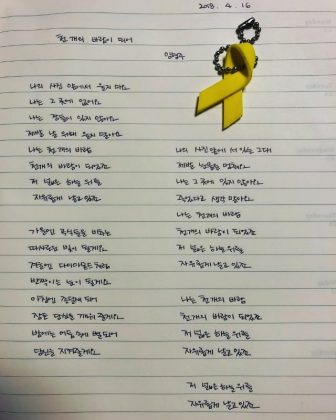 2018. 4. 16
천 개의 바람이 되어
임형주
나의 사진 앞에서 울지 마요
나는 그곳에 없어요
나는 잠들어 있지 않아요
제발 날 위해 울지 말아요
나는 천개의 바람
천개의 바람이 되었죠
저 넓은 하늘 위를
자유롭게 날고 있죠
가을엔 곡식들을 비추는
따사로운 빛이 될게요
겨울엔 다이아몬드처럼
반짝이는 눈이 될게요
아침엔 종달새 되어
잠든 당신을 깨워줄게요
밤에는 어둠 속에 별 되어
당신을 지켜줄게요
나의 사진 앞에 서 있는 그대
제발 눈물을 멈춰요
나는 그곳에 있지 않아요
죽었다고 생각 말아요
나는 천개의 바람
천개의 바람이 되었죠
저 넓은 하늘 위를
자유롭게 날고 있죠
나는 천 개의 바람
천 개의 바람이 되었죠
저 넓은 하늘 위를
자유롭게 날고 있죠
저 넓은 하늘 위를
자유롭게 날고 있죠